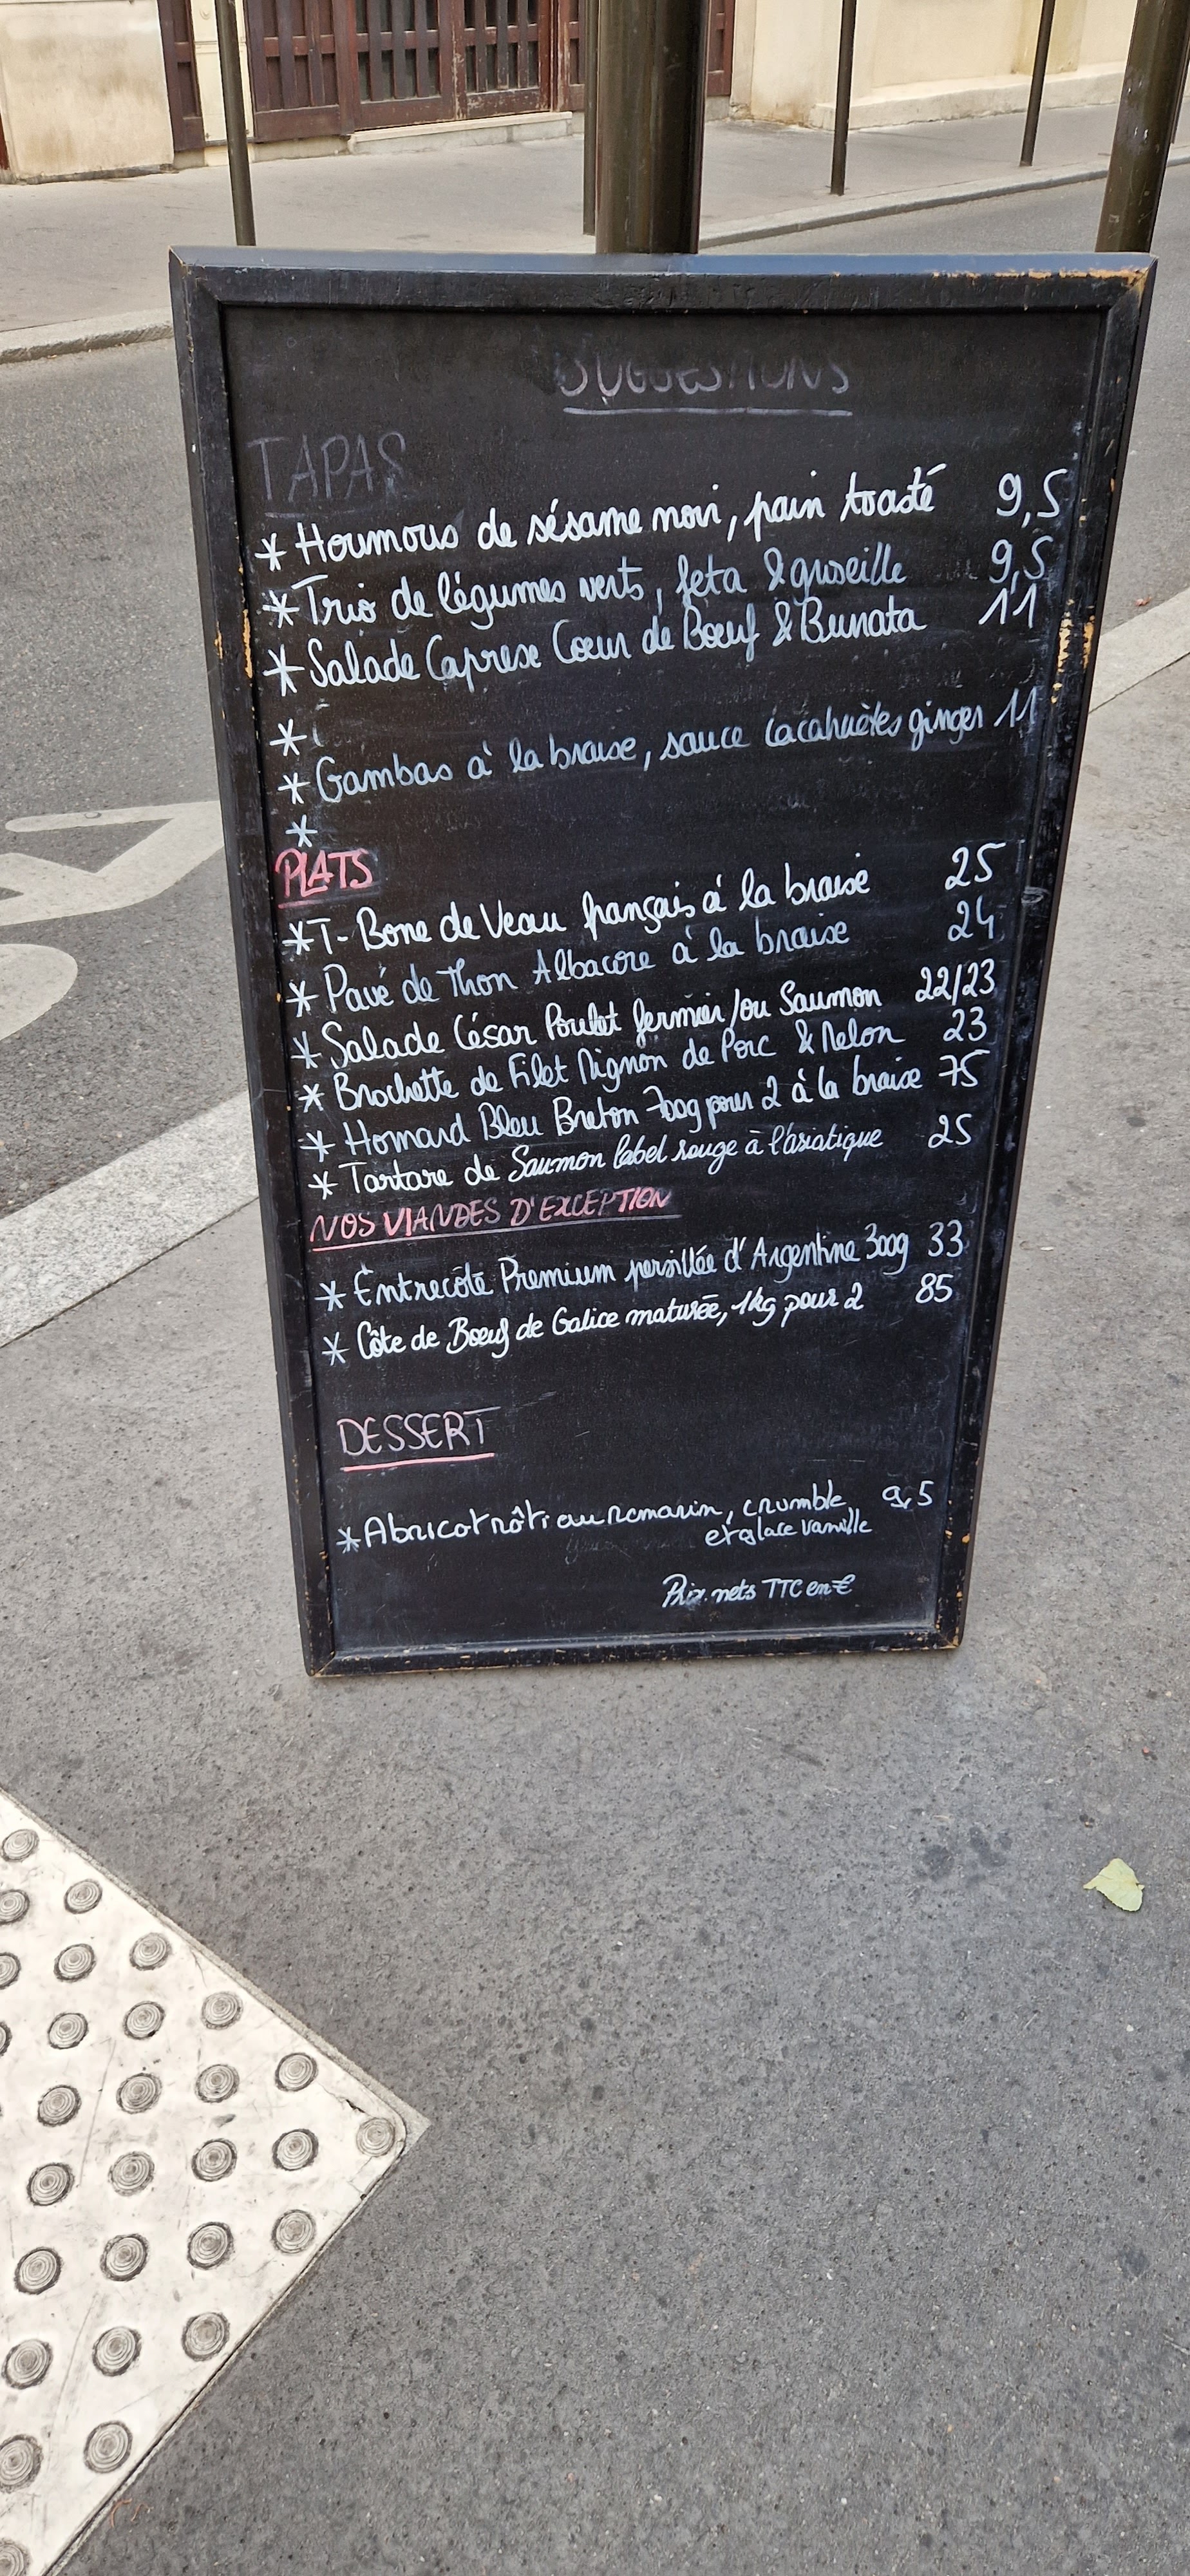 SUGGESTIONS
TAPAS
* Houmous de sésame noir, pain toasté 9,5
* Trio de légumes verts, feta & groseille 9,5
* Salade Caprese Coeur de Bœuf & Burrata 11
*
* Gambas à la braise, sauce cacahuètes ginger 11
*
PLATS
* T-Bone de Veau français à la braise 25
* Pavé de Thon Albacore à la braise 24
* Salade César Poulet fermier /ou Saumon 22/23
* Brochette de Filet Mignon de Porc & Melon 23
* Homard Bleu Breton 700g pour 2 à la braise 75
* Tartare de Saumon label rouge à l'asiatique 25
NOS VIANDES D'EXCEPTION
* Entrecôte Premium persillée d'Argentine 300g 33
* Côte de Bœuf de Galice maturée, 1kg pour 2 85
DESSERT
* Abricot rôti au romarin, crumble 9,5
et glace vanille
Prix nets TTC en €